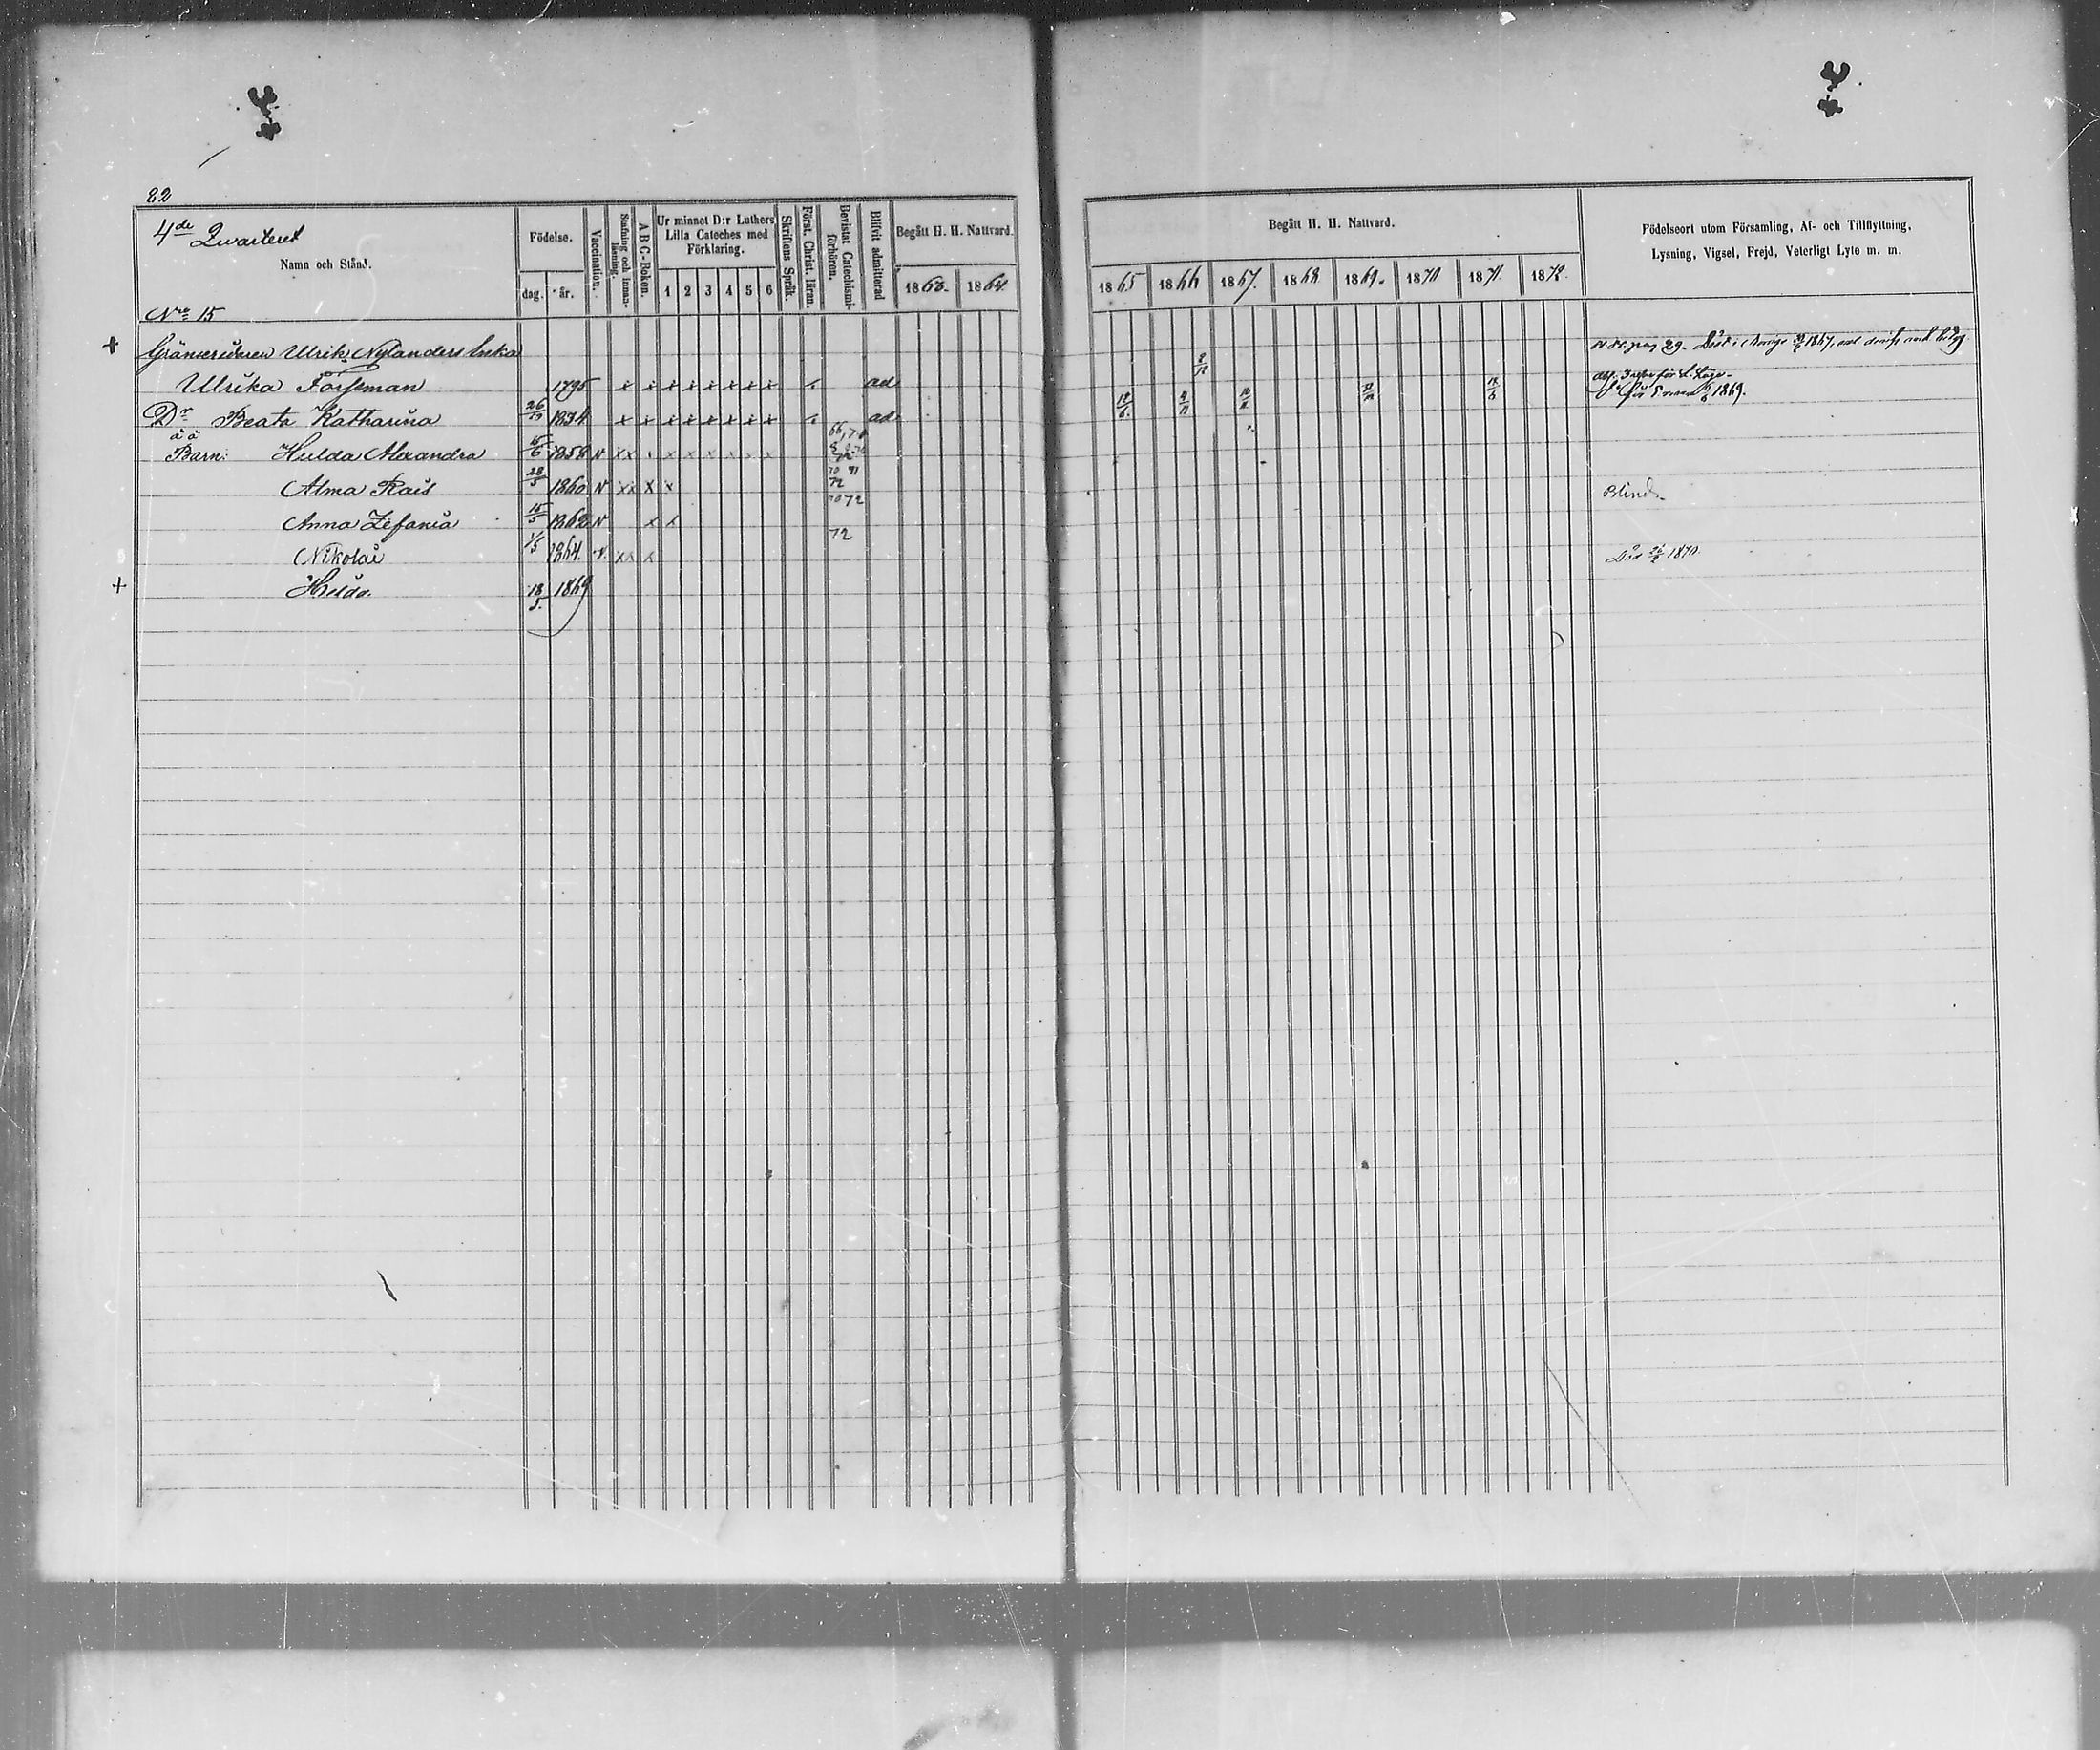 82
4de Quarteret
Namn och Stånd.
Födelse.
dag. år.
Vaccination.
Stafning och Innanläsning.
A B C-Boken.
Ur minnet D:r Luthers Lilla Cateches med Förklaring.
1 2 3 4 5 6
Skriftens Språk.
Först. Christ. läran.
Bevistat Catechismiförhören.
Blifvit admitterad
Begått H. H. Nattvard.
1863. 1864.
Begått H. H. Nattvard.
1865 1866 1867. 1868 1869. 1870 1871. 1872.
Födelseort utom Församling, Af- och Tillflyttning,
Lysning, Vigsel, Frejd, Veterligt Lyte m. m.
Nro 15
+ Gränseridaren Ulrik Nylanders Enka
Ulrika Forssman 1795 x x x x x x x x x ad
Dr Beata Katharina 1834 x x x x x x x x x ad 1869.
o ä
Barn: Hulda Alexandra 15/6 1858 v xx x x x x x x x 66, 71
Alma Rais 28/5 1860 v xx x x 70 71 72 Blind.
Anna Zefania 15/5 1862 v x x 72
Nikolai 1/5 1864. v. xx x 72 Död 1870.
+ Hilda. 18/3. 1869